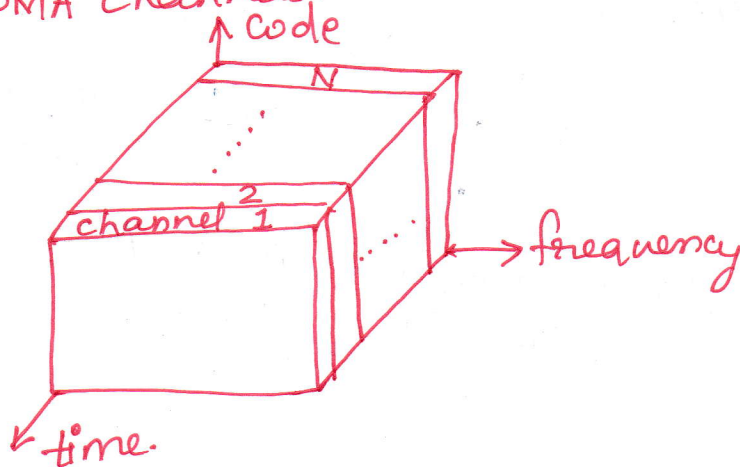 Code
N
2
channel 1
frequency
time.